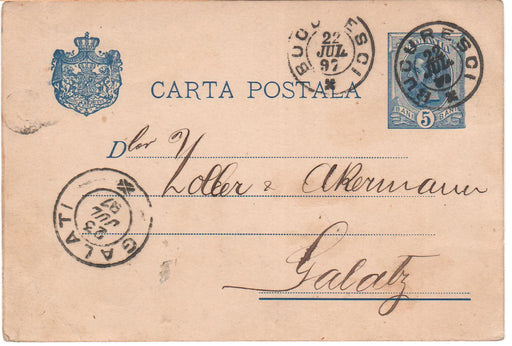 BUCURESCI
22
JUL
97
BUCURESCI
JUL
CARTA POSTALA
BANI 5 BANI
Dlor Zoller & Akermann
Galatz
GALATI
23
JUL
97